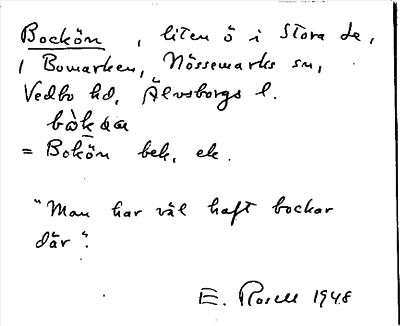 Bockön, liten ö i Stora Le,
i Bomarken, Nössemarks sn,
Vedbo hd, Älvsborgs l.
= Bokön bek, ek.
"Man har väl haft bockar
där".
E. Rosell 1948